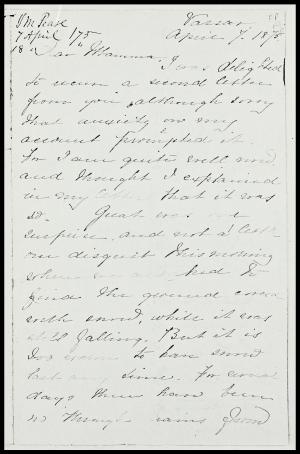 V M Pease
7 April /75
18 "
Vassar
April 7. 1875
Dear Mamma,
I was delighted
to receive a second letter
from you, although sorry
that anxiety on my
account prompted it.
For I am quite well now,
and thought I explained
in my letter that it was
so. Great was our
surprise and not a little
our disquiet this morning
when we
to
find the ground covered
with snow, while it was
still falling. But it is
too warm to have snow
last any time. For several
days there have been
rains from